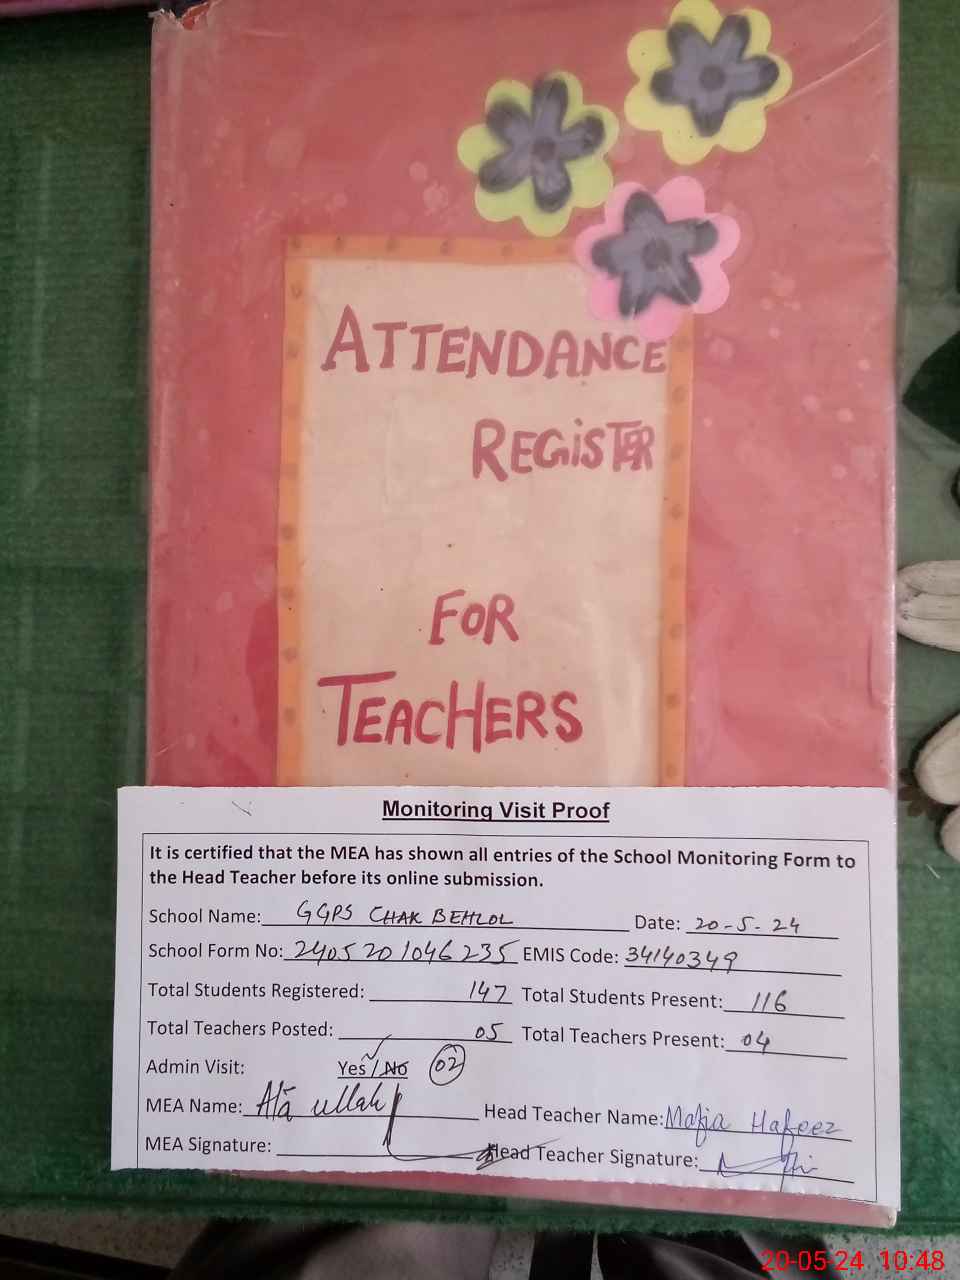 ATTENDANCE
REGISTER
FOR
TEACHERS
Monitoring Visit Proof
It is certified that the MEA has shown all entries of the School Monitoring Form to
the Head Teacher before its online submission.
School Name: GGPS CHAK BEHLOL Date: 20-5-24
School Form No: 2405201046235 EMIS Code: 34140349
Total Students Registered: 147 Total Students Present: 116
Total Teachers Posted: 05 Total Teachers Present: 04
Admin Visit: Yes / No 02
MEA Name: Atā ullah Head Teacher Name: Hafeez
MEA Signature: Head Teacher Signature:
20-05-24 10:48